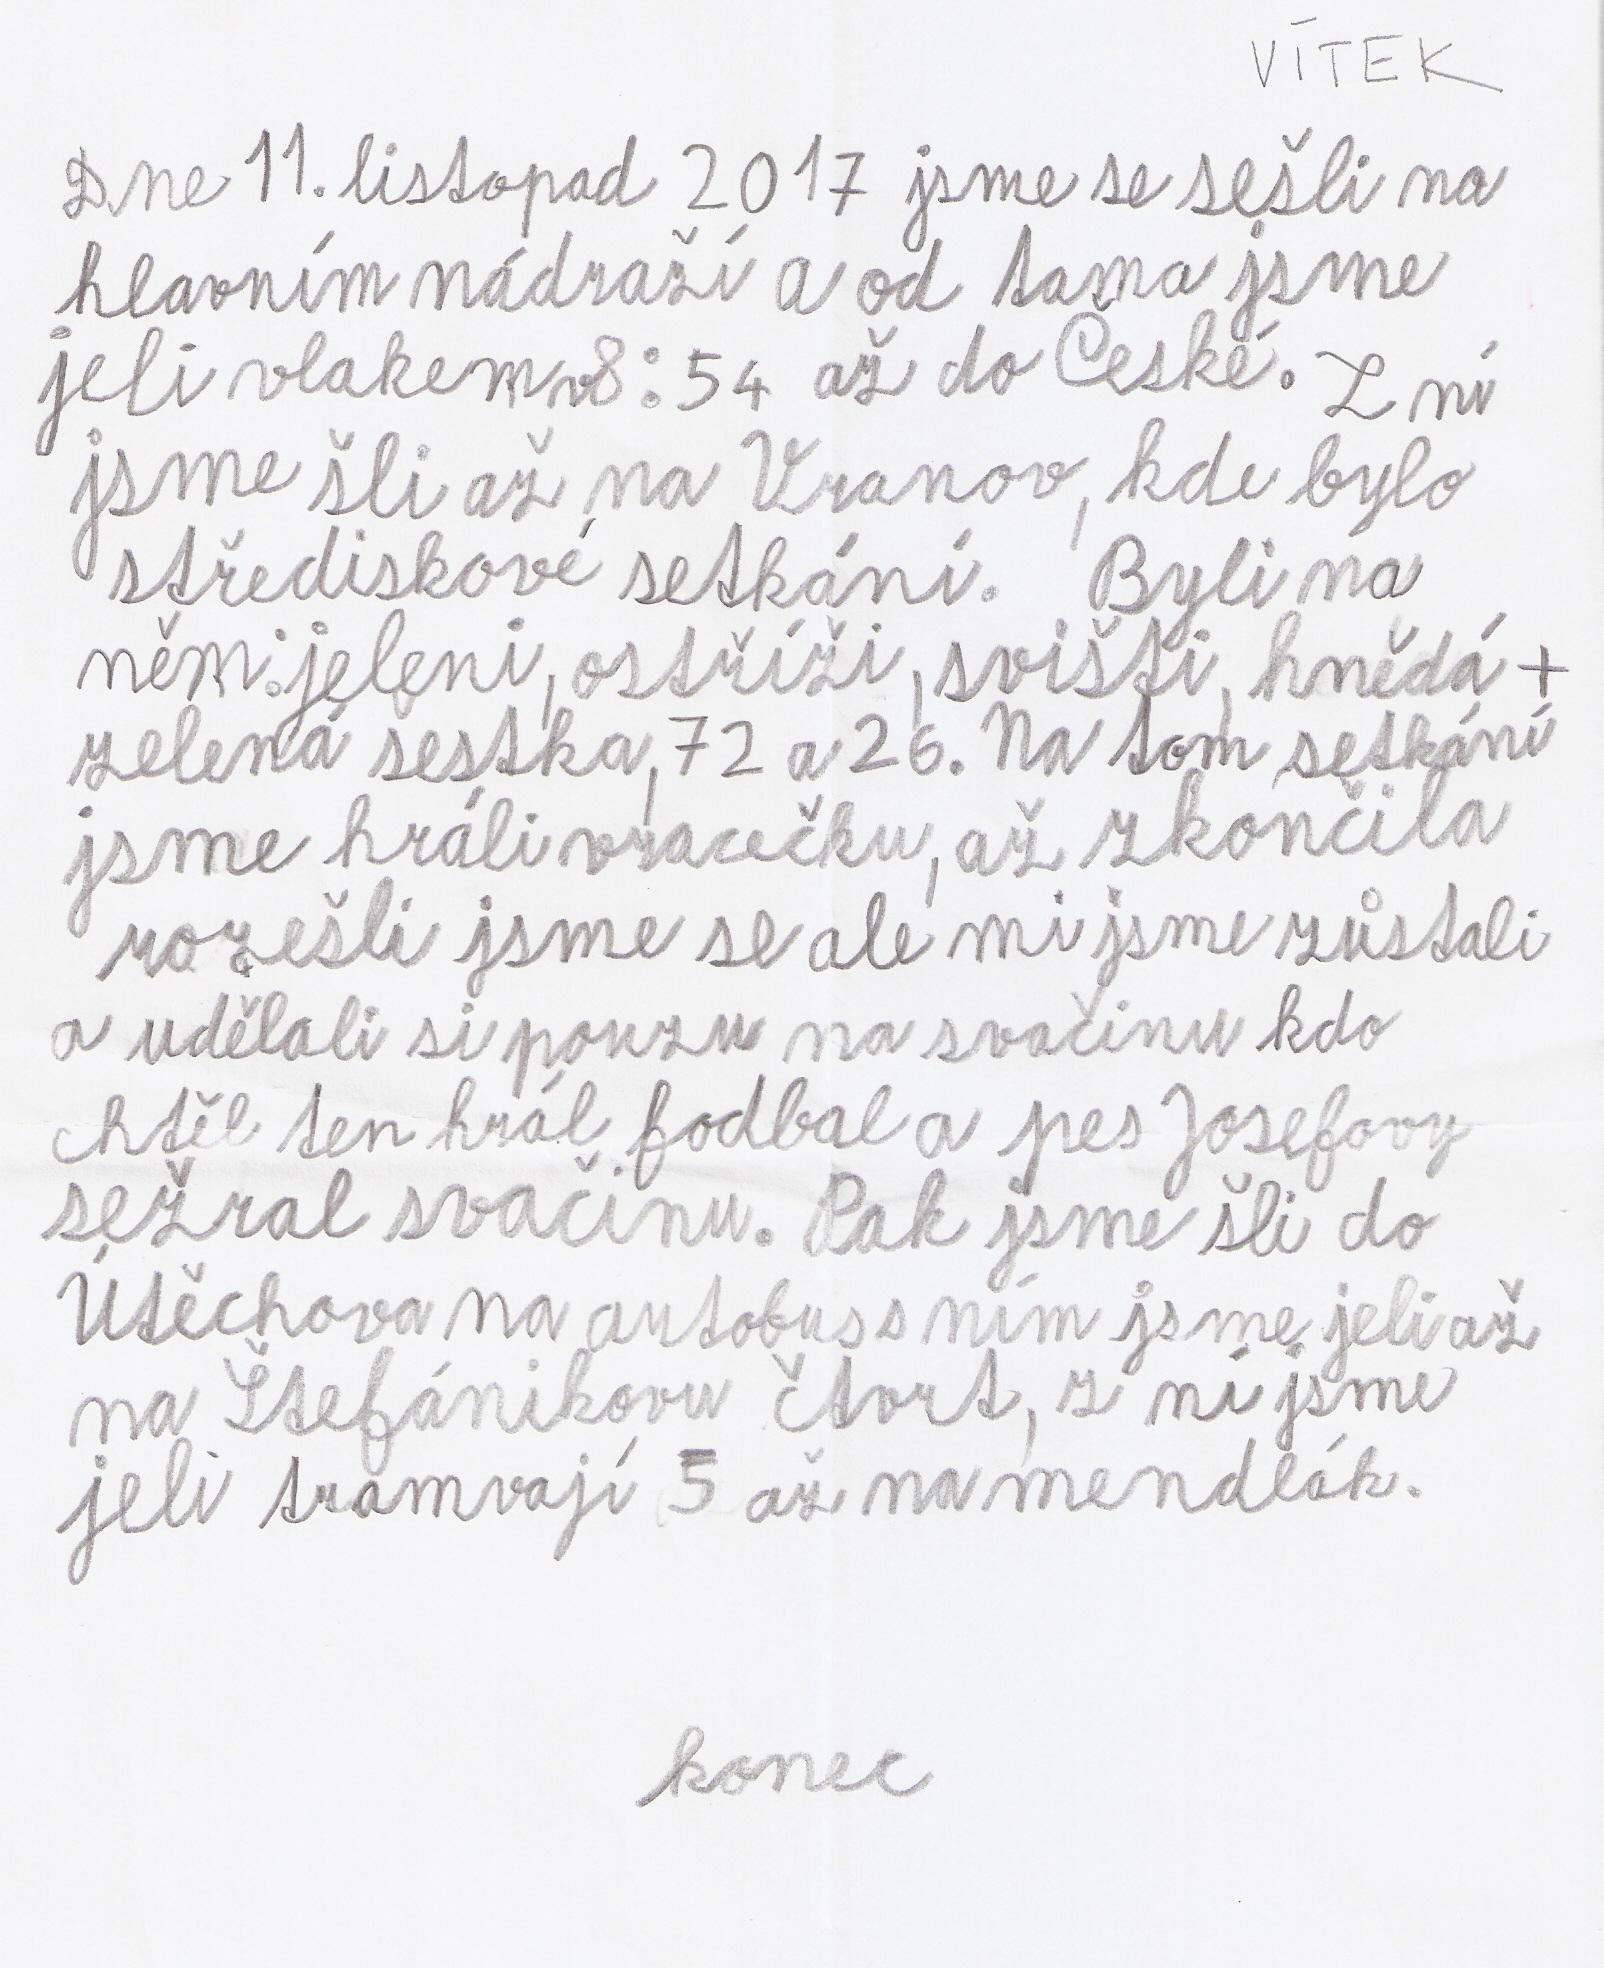 VÍTEK
Dne 11. listopad 2017 jsme se sešli na
hlavním nádraží a od tama jsme
jeli vlakem v 8:54 až do České. Z ní
jsme šli až na Vranov, kde bylo
střediskové setkání. Byli na
něm: jeleni, ostříži, svišti, hnědá +
zelená sestka, 72 a 26. Na tom setkání
jsme hráli vracečku, až zkončila
rozešli jsme se ale mi jsme zůstali
a udělali si pouzu na svačinu kdo
chtěl ten hrál fodbal a pes Josefovy
sežral svačinu. Pak jsme šli do
Útěchova na autobus s ním jsme jeli až
na Štefánikovu čtvrt, z ní jsme
jeli tramvají 5 až na mendlák.
konec